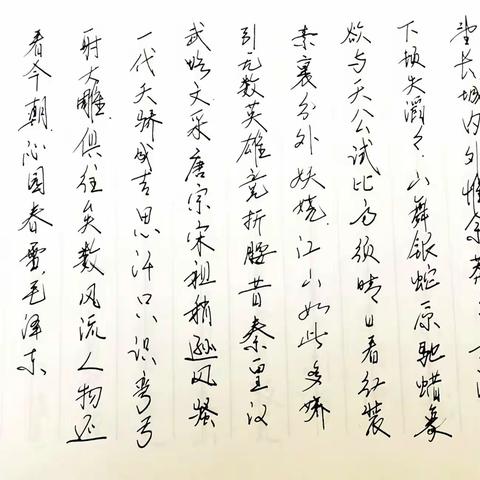 望长城内外惟余莽
下顿失滔々山舞银蛇原驰蜡象
欲与天公试比高须晴日看红装
素裹分外妖娆江山如此多娇
引无数英雄竞折腰昔秦皇汉
武略文采唐宗宋祖稍逊风骚
一代天骄成吉思汗只识弯弓
射大雕俱往矣数风流人物还
看今朝沁园春雪毛泽东